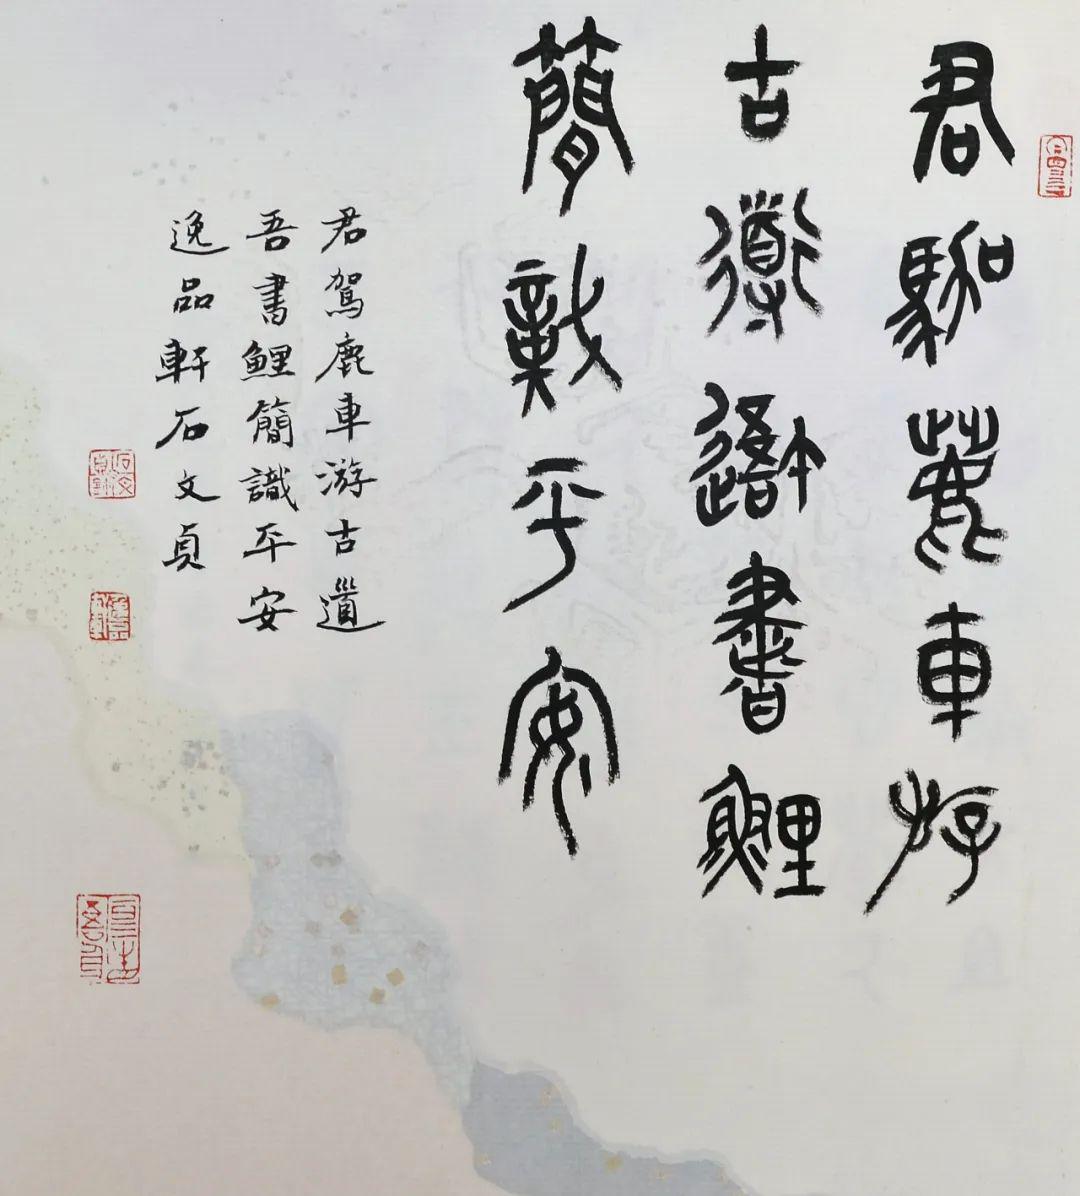 君駕鹿車游
古道吾書鯉
簡識平安
君駕鹿車游古道
吾書鯉簡識平安
逸品軒石文貞